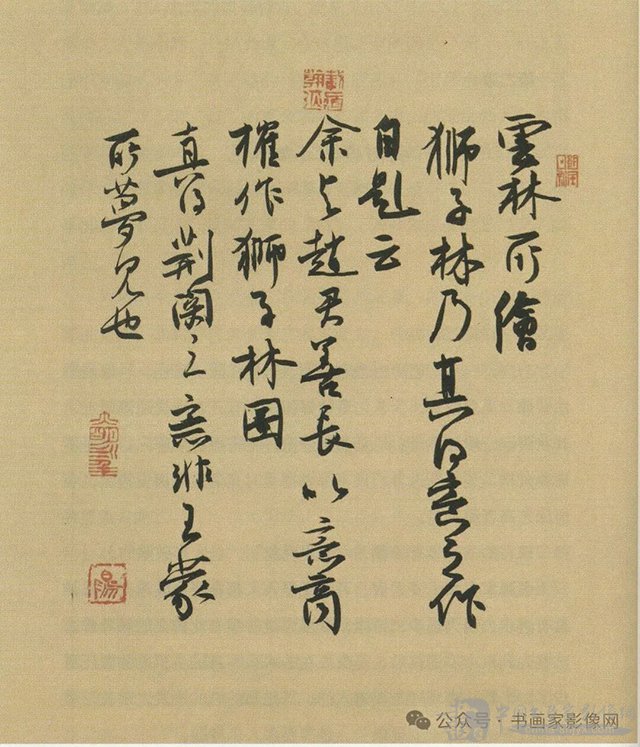 雲林所繪
獅子林乃真得意之作
自題云
余与趙君善長以意商
榷作獅子林图
真得荆関之意非王蒙
所夢見也
公众号·书画家影像网